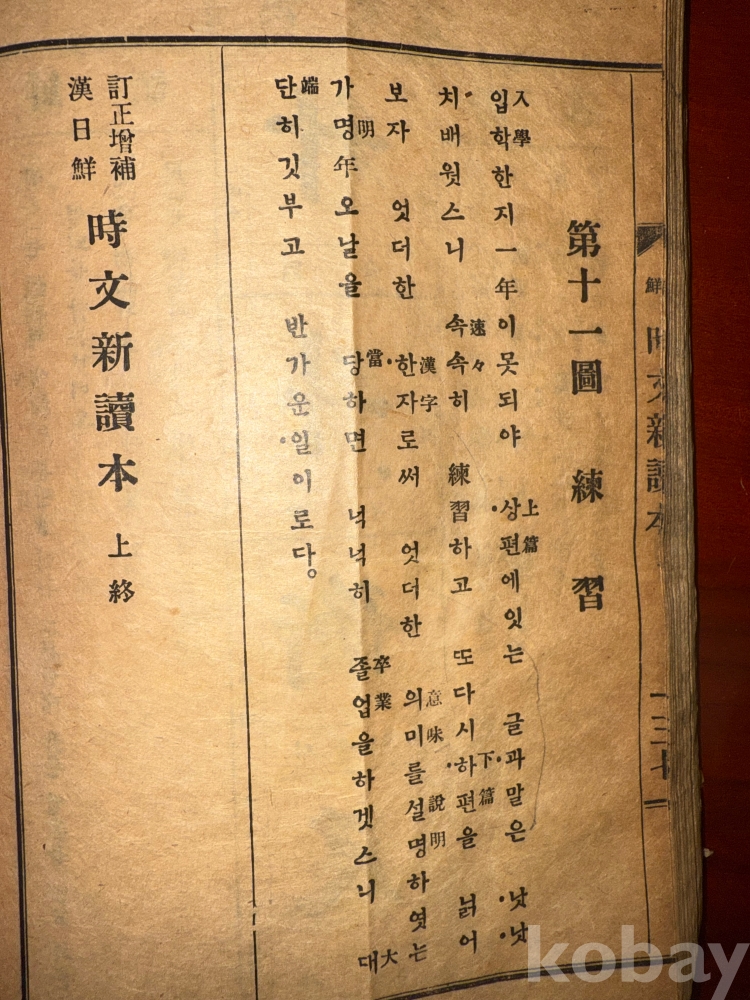 鮮 時文新讀本
第十一圖 練習
入學 上篇
입학한지一年이못되야 상편에잇는 글과말은 낫낫
速々 下篇
치배웟스니 속속히 練習하고 또다시하편을 닑어
漢字 意味 說明
보자 엇더한 한자로써 엇더한 의미를설명하엿는
明 當 卒業 大
가명年오날을 당하면 넉넉히 졸업을하겟스니 대
端
단히깃부고 반가운일이로다。
訂正增補
漢日鮮
時文新讀本 上終
kobay